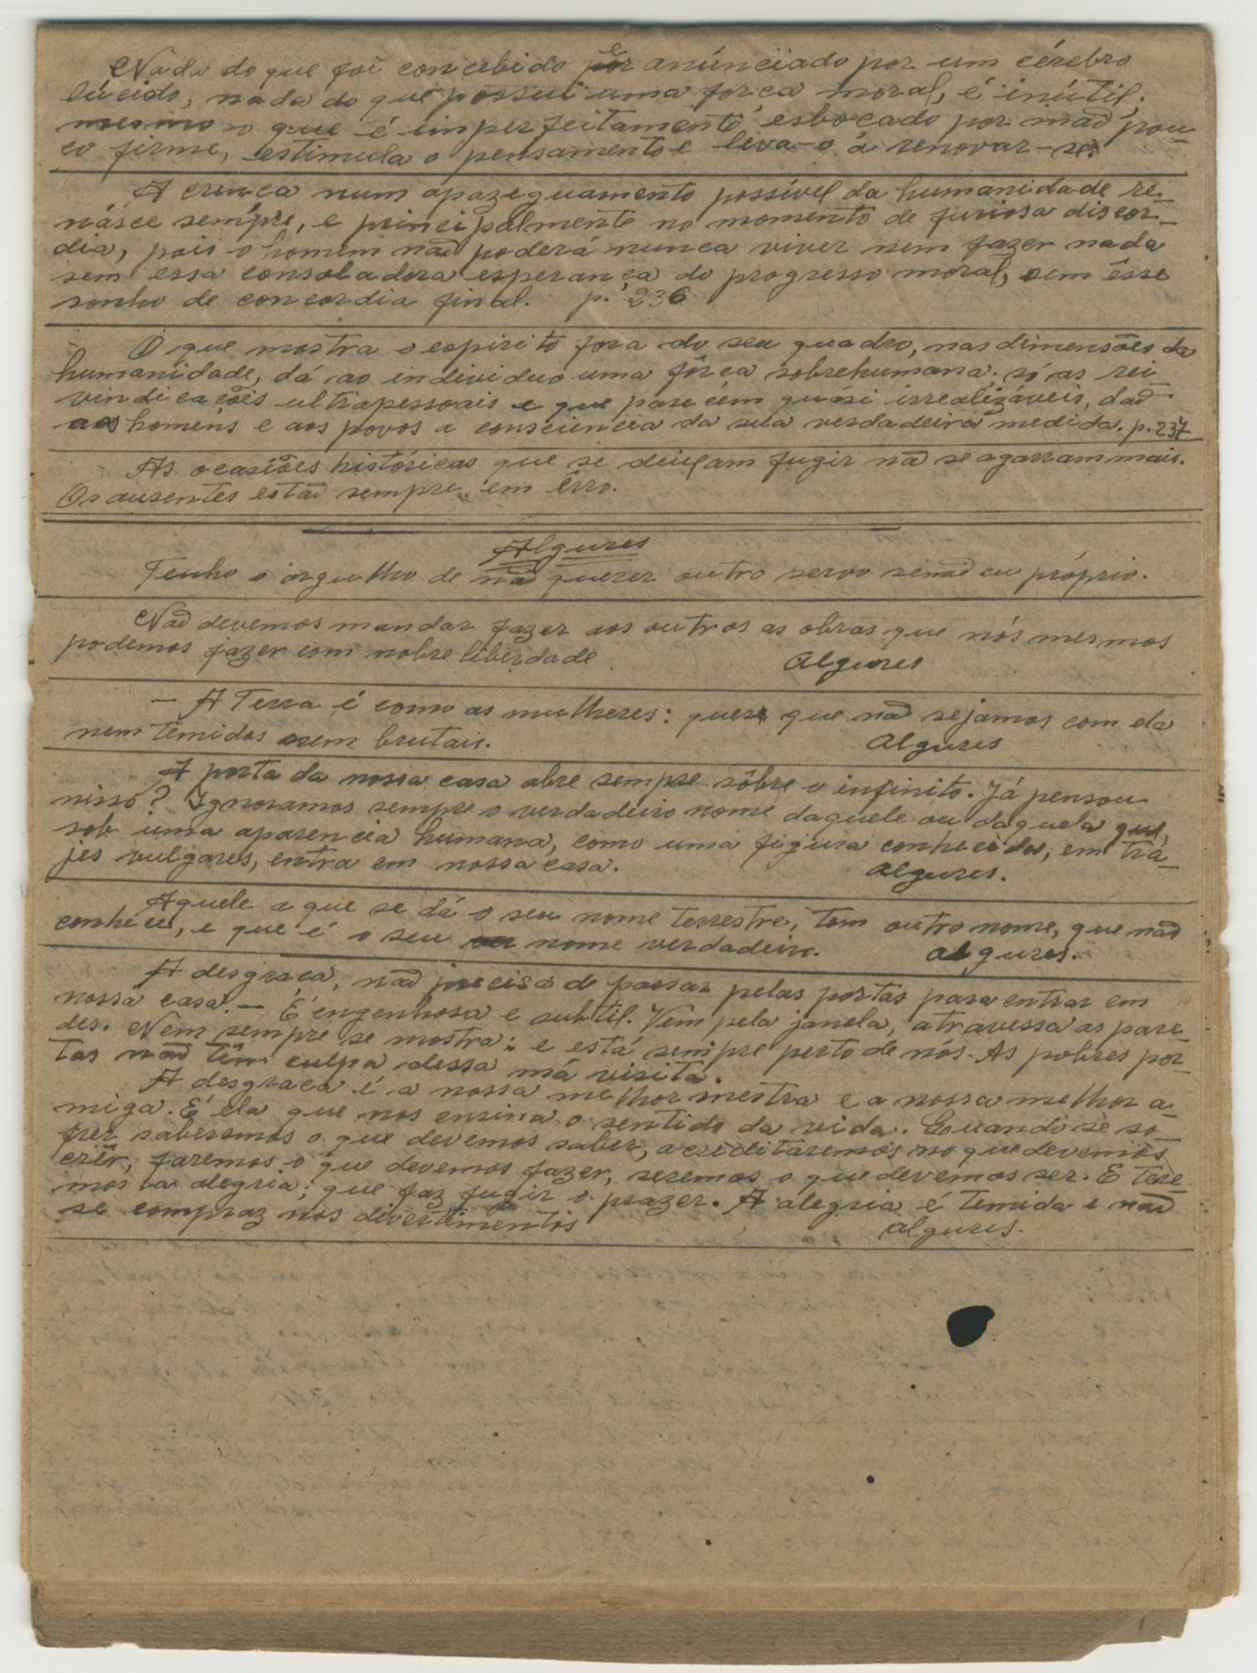 Nada do que foi concebido e anúnciado por um cérebro
lúcido, nada do que possui uma fôrça moral, é inútil;
mesmo o que é imperfeitamente esboçado por mão pou-
co firme, estimula o pensamento e leva-o á renovar-se.
A crença num apazeguamento possível da humanidade re-
násce sempre, e principalmente no momento de furiosa discor-
dia, pois o homem não poderá nunca viver nem fazer nada
sem essa consoladora esperança do progresso moral, sem êsse
sonho de concordia final. p. 236
O que mostra o espirito fora do seu quadro, nas dimensões da
humanidade, dá ao individuo uma fôrça sobrehumana. só as rei-
vindicações ultrapessoais e que parecem quási irrealizáveis, dão
aos homens e aos povos a consciencia da sua verdadeira medida. p. 237
As ocasiões históricas que se deixam fugir não se agarram mais.
Os ausentes estão sempre em êrro.
Algures
Tenho o orgulho de não querer outro servo senão eu próprio.
Não devemos mandar fazer aos outros as obras que nós mesmos
podemos fazer com nobre liberdade. Algures
— A Terra é como as mulheres: quere que não sejamos com ela
nem timidos nem brutais. Algures
A porta da nossa casa abre sempre sôbre o infinito. Já pensou
nisso? Ignoramos sempre o verdadeiro nome daquele ou daquela que,
sob uma aparencia humana, como uma figura conhecida, em tra-
jes vulgares, entra em nossa casa. Algures.
Aquele a que se dá o seu nome terrestre, tem outro nome, que não
conheces, e que é o seu nome verdadeiro. algures.
A desgraça, não precisa de passar pelas portas para entrar em
nossa casa. — É engenhosa e subtil. Vem pela janela, atravessa as pare-
des. Nem sempre se mostra; e está sempre perto de nós. As pobres por-
tas não têm culpa dessa má visita.
A desgraça é a nossa melhor mestra e a nossa melhor a-
miga. É ela que nos ensina o sentido da vida. Quando se so-
frer saberemos o que devemos saber, acreditaremos no que devemos
crêr, faremos o que devemos fazer, seremos o que devemos ser. E tere-
mos a alegria; que faz fugir o prazer. A alegria é temida e não
se compraz nos divertimentos algures.